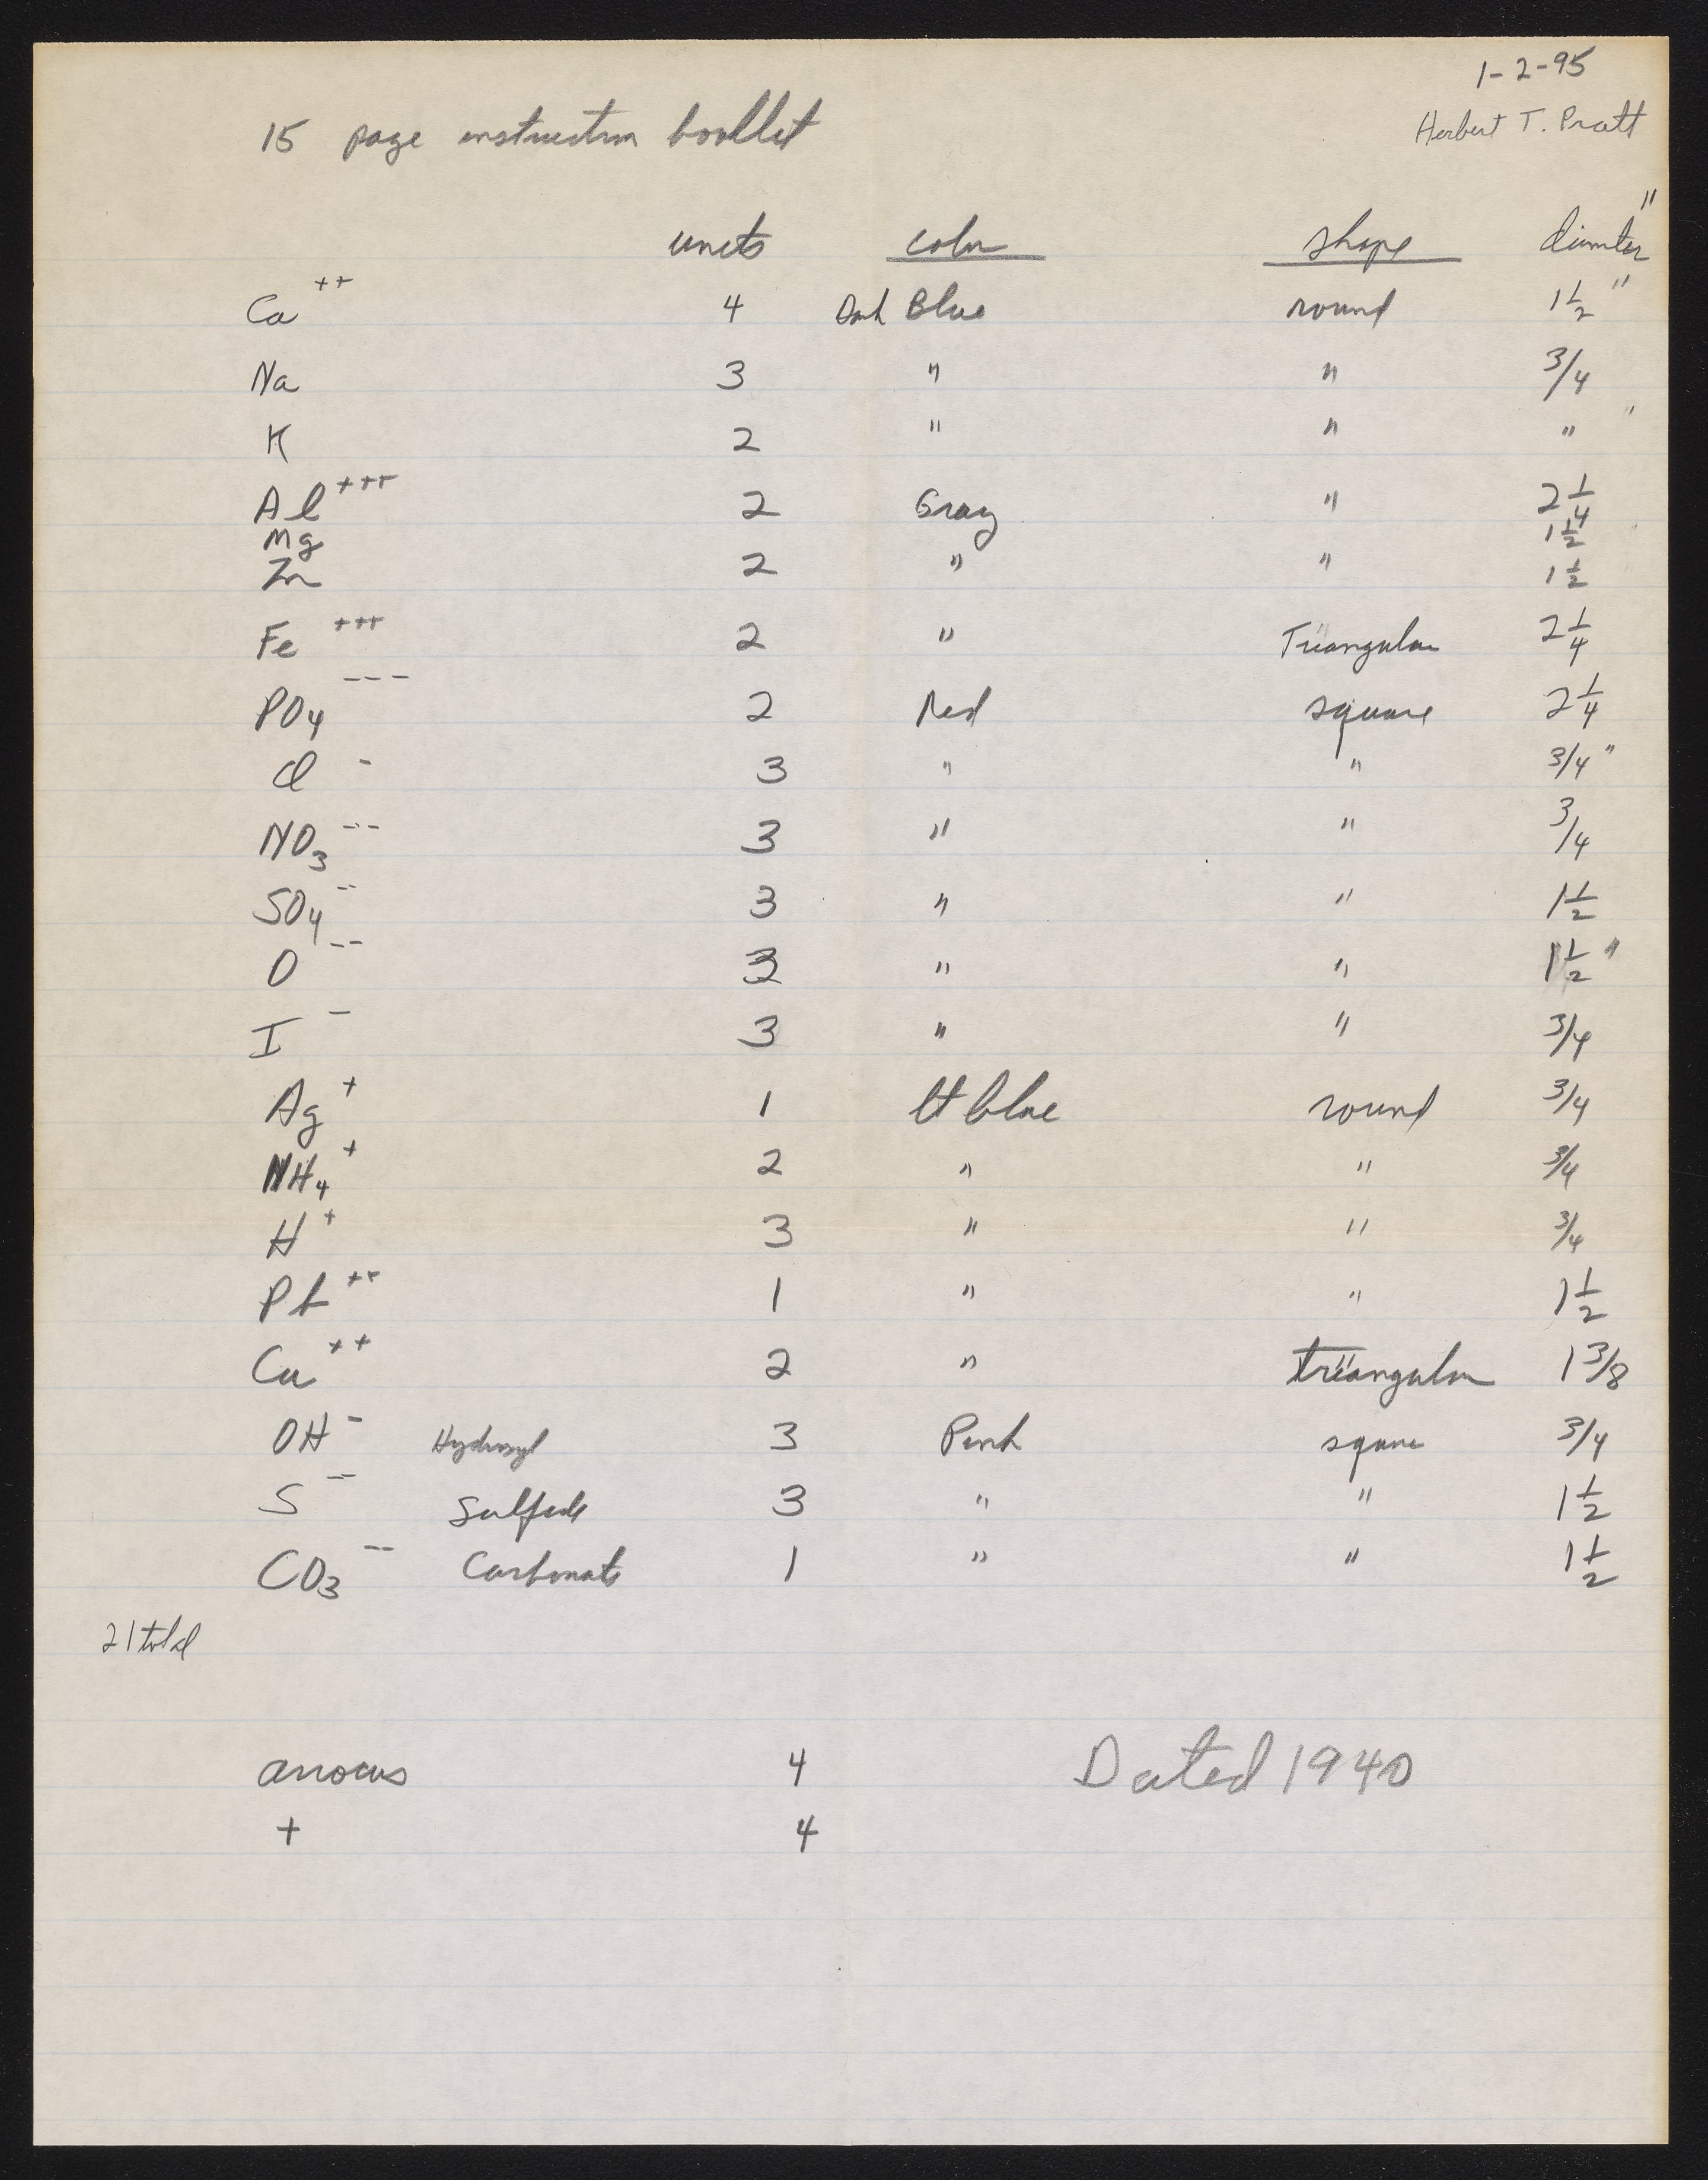 1-2-95
Herbert T. Pratt
15 page instruction booklet
units color shape diameter "
Ca ++ 4 Dark Blue round 1 1/2 "
Na 3 " " 3/4
K 2 " " " "
Al +++ 2 Gray " 2 1/4
Mg 1 1/2
Zn 2 " " 1 1/2
Fe +++ 2 " Triangular 2 1/4
PO4 --- 2 Red square 2 1/4
Cl - 3 " " 3/4 "
NO3 -- 3 " " 3/4
SO4 -- 3 " " 1 1/2
O -- 3 " " 1 1/2 "
I - 3 " " 3/4
Ag + 1 lt blue round 3/4
NH4 + 2 " " 3/4
H + 3 " " 3/4
Pb ++ 1 " " 1 1/2
Cu ++ 2 " triangular 1 3/8
OH - Hydroxyl 3 Pink square 3/4
S -- Sulfide 3 " " 1 1/2
CO3 -- Carbonate 1 " " 1 1/2
21 total
arrows 4 Dated 1940
+ 4